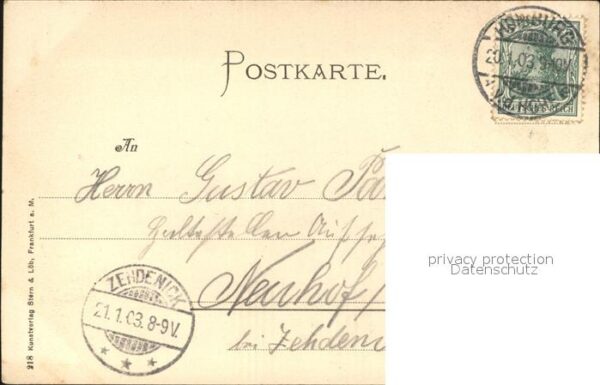 HOMBURG
20.1.03. 9-10V.
POSTKARTE.
An
Herrn Gustav
Neuhof
bei Zehden
privacy protection
Datenschutz
ZEHDENICK
21.1.03. 8-9V.
218 Kunstverlag Stern & Löb, Frankfurt a. M.